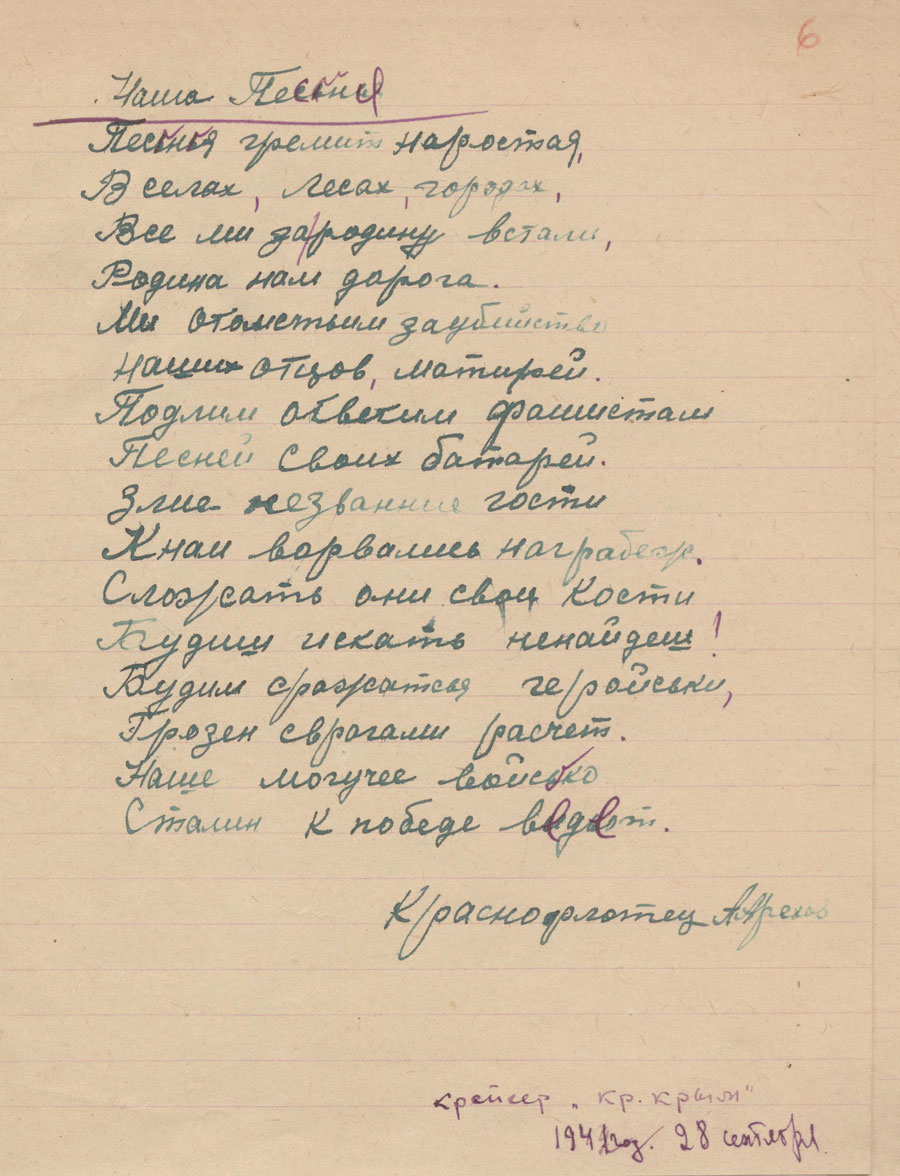 6
Наша Песня
Песня гремит наростая,
В селах, лесах, городах,
Все ми за родину встали,
Родина нам дорога.
Ми отомстьим заубийство
наших отцов, матирей.
Подлим ответим фашистам
Песней своих батарей.
Злие незванние гости
Кнам ворвались награбеж.
Сложать они свои кости
Будиш искать ненайдеш!
Будим сражатсья геройськи,
Грозен сврагами расчет.
Наше могучее войсько
Сталин к победе ведет.
Краснофлотец
крейсер „Кр. Крым"
1941 год. 28 сентября